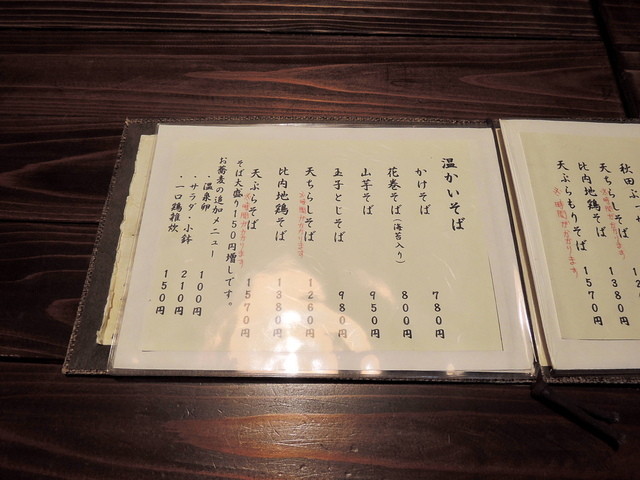 秋田
天ちらしそば
※時間がかかります
比内地鶏そば 1570円
天ぷらもりそば
※時間がかかります
温かいそば
かけそば 780円
花巻そば(海苔入り) 800円
山芋そば 950円
玉子とじそば 980円
天ちらしそば 1260円
※時間がかかります
比内地鶏そば 1380円
天ぷらそば 1570円
※時間がかかります
そば大盛り150円増しです。
お蕎麦の追加メニュー
・温泉卵 100円
・サラダ・小鉢 210円
・一口鶏雑炊 150円